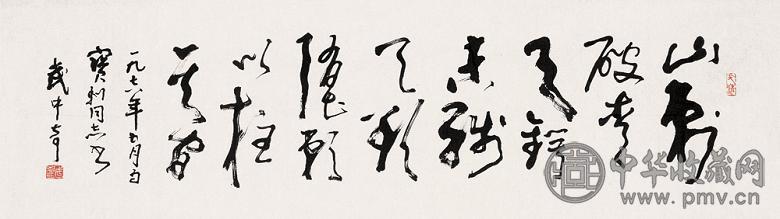 山刺
破青
天鍔
未殘
天欲
墮賴
以柱
其間
一九七八年五月为
寶利同志书
武中奇
中华收藏网
www.pmv.cn